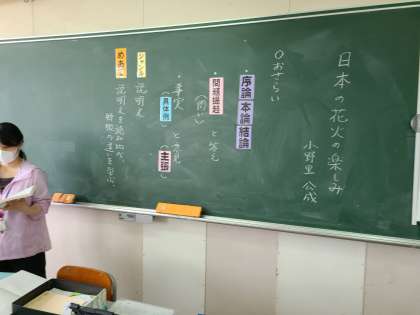 日本の花火の楽しみ
小野里 公成
○おさらい
序論 本論 結論
・問題提起 と 答え
(問い)
・事実 と 意見
(具体例) (主張)
ジャンル 説明文
めあて 説明文を読み比べ、
特徴の違いを学ぶ。